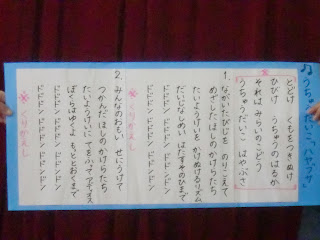 ♫うちゅうだいこ「ハヤブサ」
※
とどけ　くもをつきぬけ
ひびけ　うちゅうのはるか
それは みらいのこどう
うちゅうだいこ　はやぶさ
1.
ながいたびじを　のりこえて
めざしたほしの かけらたち
たいようけいを かけぬけるリズム
だいじなしめい はたすそのひまで
ドドドン ドドドン ドンドン
ドドドン ドドドン ドンドン
※くりかえし
2.
みんなのおもい　せにうけて
つかんだほしの かけらたち
たいようけいに てをふって
ぼくらはゆくよ もっととおくまで
ドドドン ドドドン ドンドン
ドドドン ドドドン ドンドン
※くりかえし